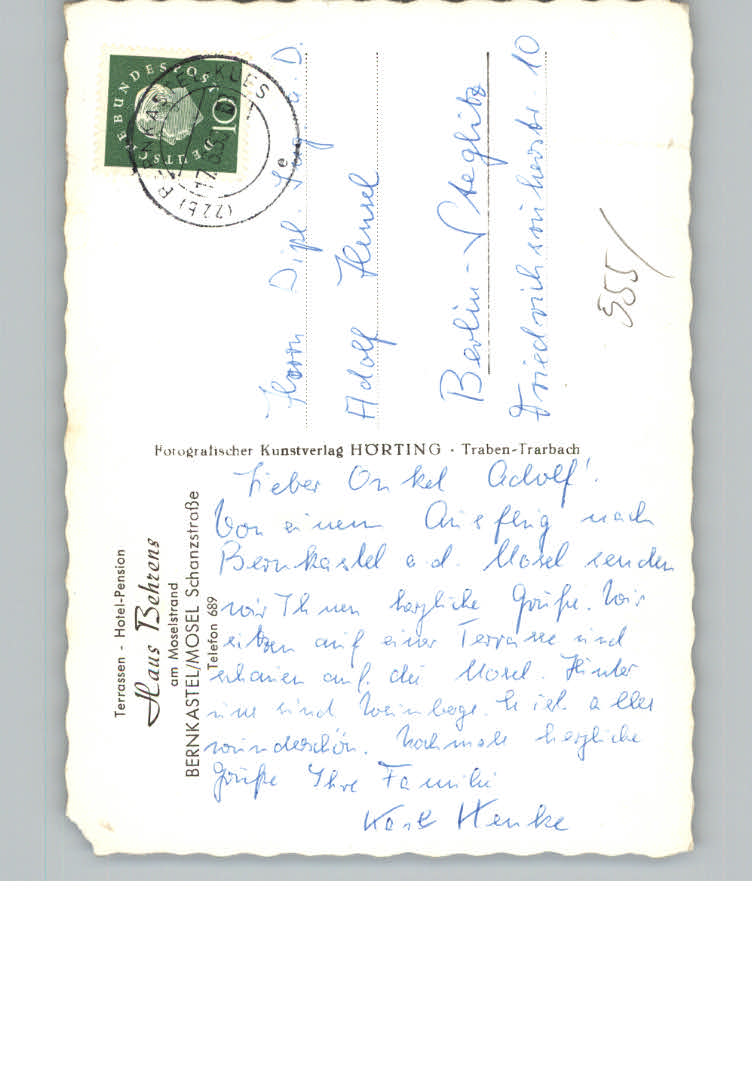 DEUTSCHE BUNDESPOST
10
(22b) BERNKASTEL-KUES
e
Herrn Dipl. Ing. a. D.
Adolf Hensel
Berlin-Steglitz
10
955/
Fotografischer Kunstverlag HÖRTING · Traben-Trarbach
Terrassen - Hotel-Pension
Haus Behrens
am Moselstrand
BERNKASTEL/MOSEL Schanzstraße
Telefon 689
Lieber Onkel Adolf!
Von einem Ausflug nach
Bernkastel a. d. Mosel senden
wir Ihnen herzliche Grüße. Wir
sitzen auf einer Terrasse und
schauen auf die Mosel. Hinter
uns sind Weinberge. Es ist alles
wunderschön. Nochmals herzliche
Grüße Ihre Familie
Karl Henke